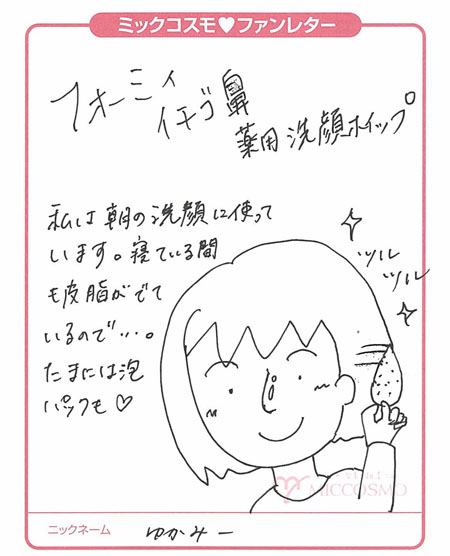 ミックコスモ♥ファンレター
フォーミィ
イチゴ鼻
薬用洗顔ホイップ
私は朝の洗顔に使って
います。寝ている間
も皮脂がでて
いるので…。
たまには泡
パックも♡
ツル
ツル
MICCOSMO
ニックネーム
ゆかみー